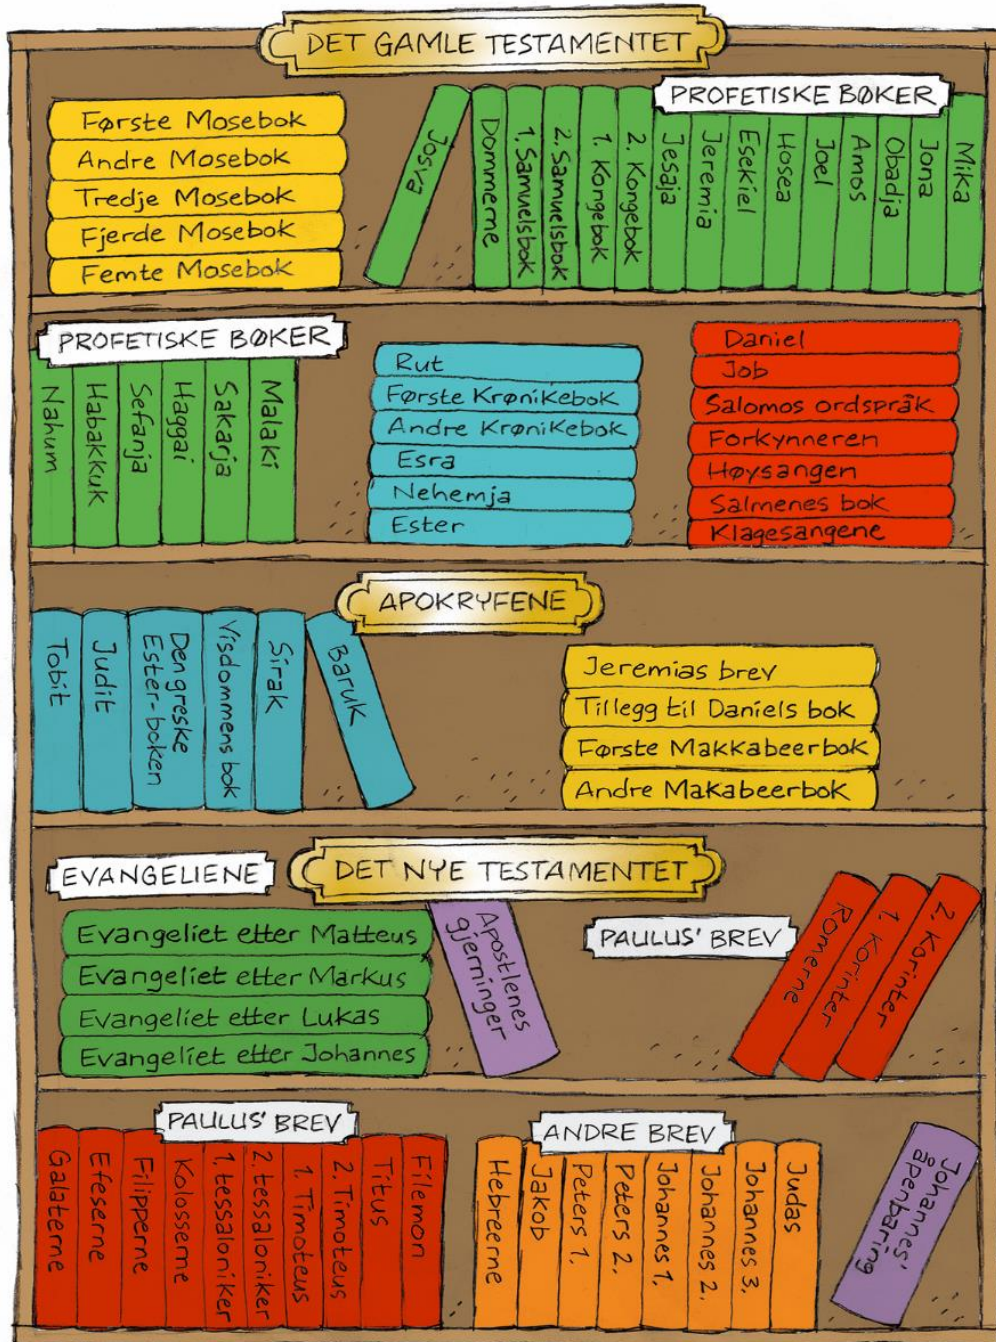 DET GAMLE TESTAMENTET
PROFETISKE BØKER
Første Mosebok
Andre Mosebok
Tredje Mosebok
Fjerde Mosebok
Femte Mosebok
Josva
Dommerne
1. Samuelsbok
2. Samuelsbok
1. Kongebok
2. Kongebok
Jesaja
Jeremia
Esekiel
Hosea
Joel
Amos
Obadja
Jona
Mika
PROFETISKE BØKER
Nahum
Habakkuk
Sefanja
Haggai
Sakarja
Malaki
Rut
Første Krønikebok
Andre Krønikebok
Esra
Nehemja
Ester
Daniel
Job
Salomos ordspråk
Forkynneren
Høysangen
Salmenes bok
Klagesangene
APOKRYFENE
Tobit
Judit
Den greske
Ester-boken
Visdommens bok
Sirak
Baruk
Jeremias brev
Tillegg til Daniels bok
Første Makkabeerbok
Andre Makabeerbok
DET NYE TESTAMENTET
EVANGELIENE
Evangeliet etter Matteus
Evangeliet etter Markus
Evangeliet etter Lukas
Evangeliet etter Johannes
Apostlenes
gjerninger
PAULUS' BREV
Romerne
1. Korinter
2. Korinter
PAULUS' BREV
Galaterne
Efeserne
Filipperne
Kolosserne
1. tessaloniker
2. tessaloniker
1. Timoteus
2. Timoteus
Titus
Filemon
ANDRE BREV
Hebreerne
Jakob
Peters 1.
Peters 2.
Johannes 1.
Johannes 2.
Johannes 3.
Judas
Johannes'
åpenbaring